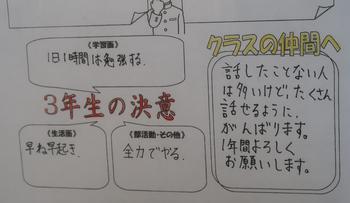 《学習面》
1日1時間は勉強する.
3年生の決意
《生活面》
早ね早起き.
《部活動・その他》
全力でやる.
クラスの仲間へ
話したことない人
は多いけど,たくさん
話せるように、
がんばります。
1年間よろしく
お願いします。